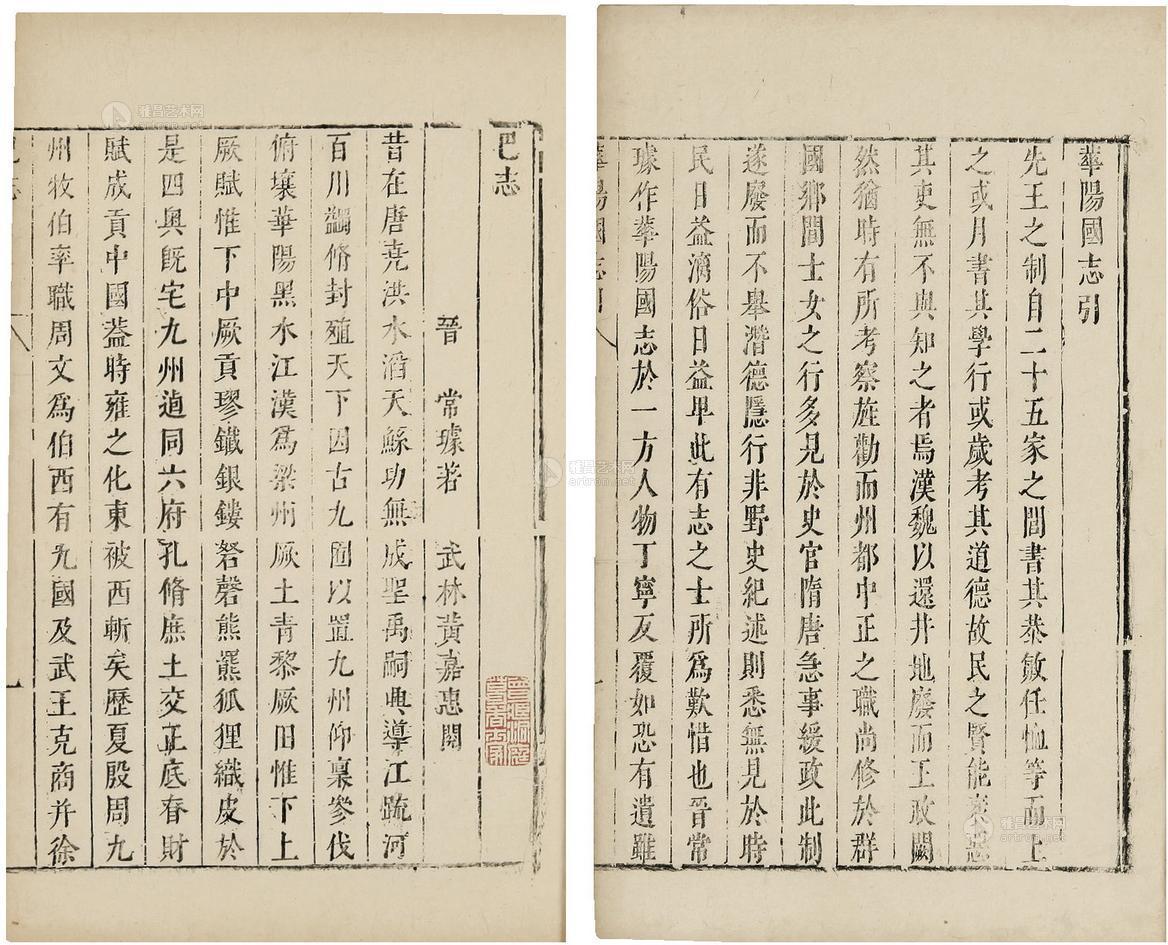 華陽國志引
先王之制自二十五家之閭書其恭敏任恤等而上
之或月書其學行或歲考其道德故民之賢能
其吏無不與知之者焉漢魏以還井地廢而王政闕
然猶時有所考察旌勸而州都中正之職尚修於群
國鄉閭士女之行多見於史官隋唐急事緩政此制
遂廢而不舉潛德隱行非野史紀述則悉無見於時
民日益漓俗日益卑此有志之士所為歎惜也晉常
璩作華陽國志於一方人物丁寧反覆如恐有遺雖
華陽國志引
巴志
晉 常璩著 武林黃嘉惠閱
昔在唐堯洪水滔天鯀功無成聖禹嗣興導江疏河
百川蠲脩封殖天下因古九囿以置九州仰稟參伐
俯壤華陽黑水江漢為梁州厥土青黎厥田惟下上
厥賦惟下中厥貢璆鐵銀鏤砮磬熊羆狐狸織皮於
是四奧既宅九州逌同六府孔脩庶土交正底春財
賦成貢中國蓋時雍之化東被西漸矣歷夏殷周九
州牧伯率職周文為伯西有九國及武王克商并徐
巴志
雅昌艺术网
雅昌艺术网
artron.net
雅昌艺术网
artron.net